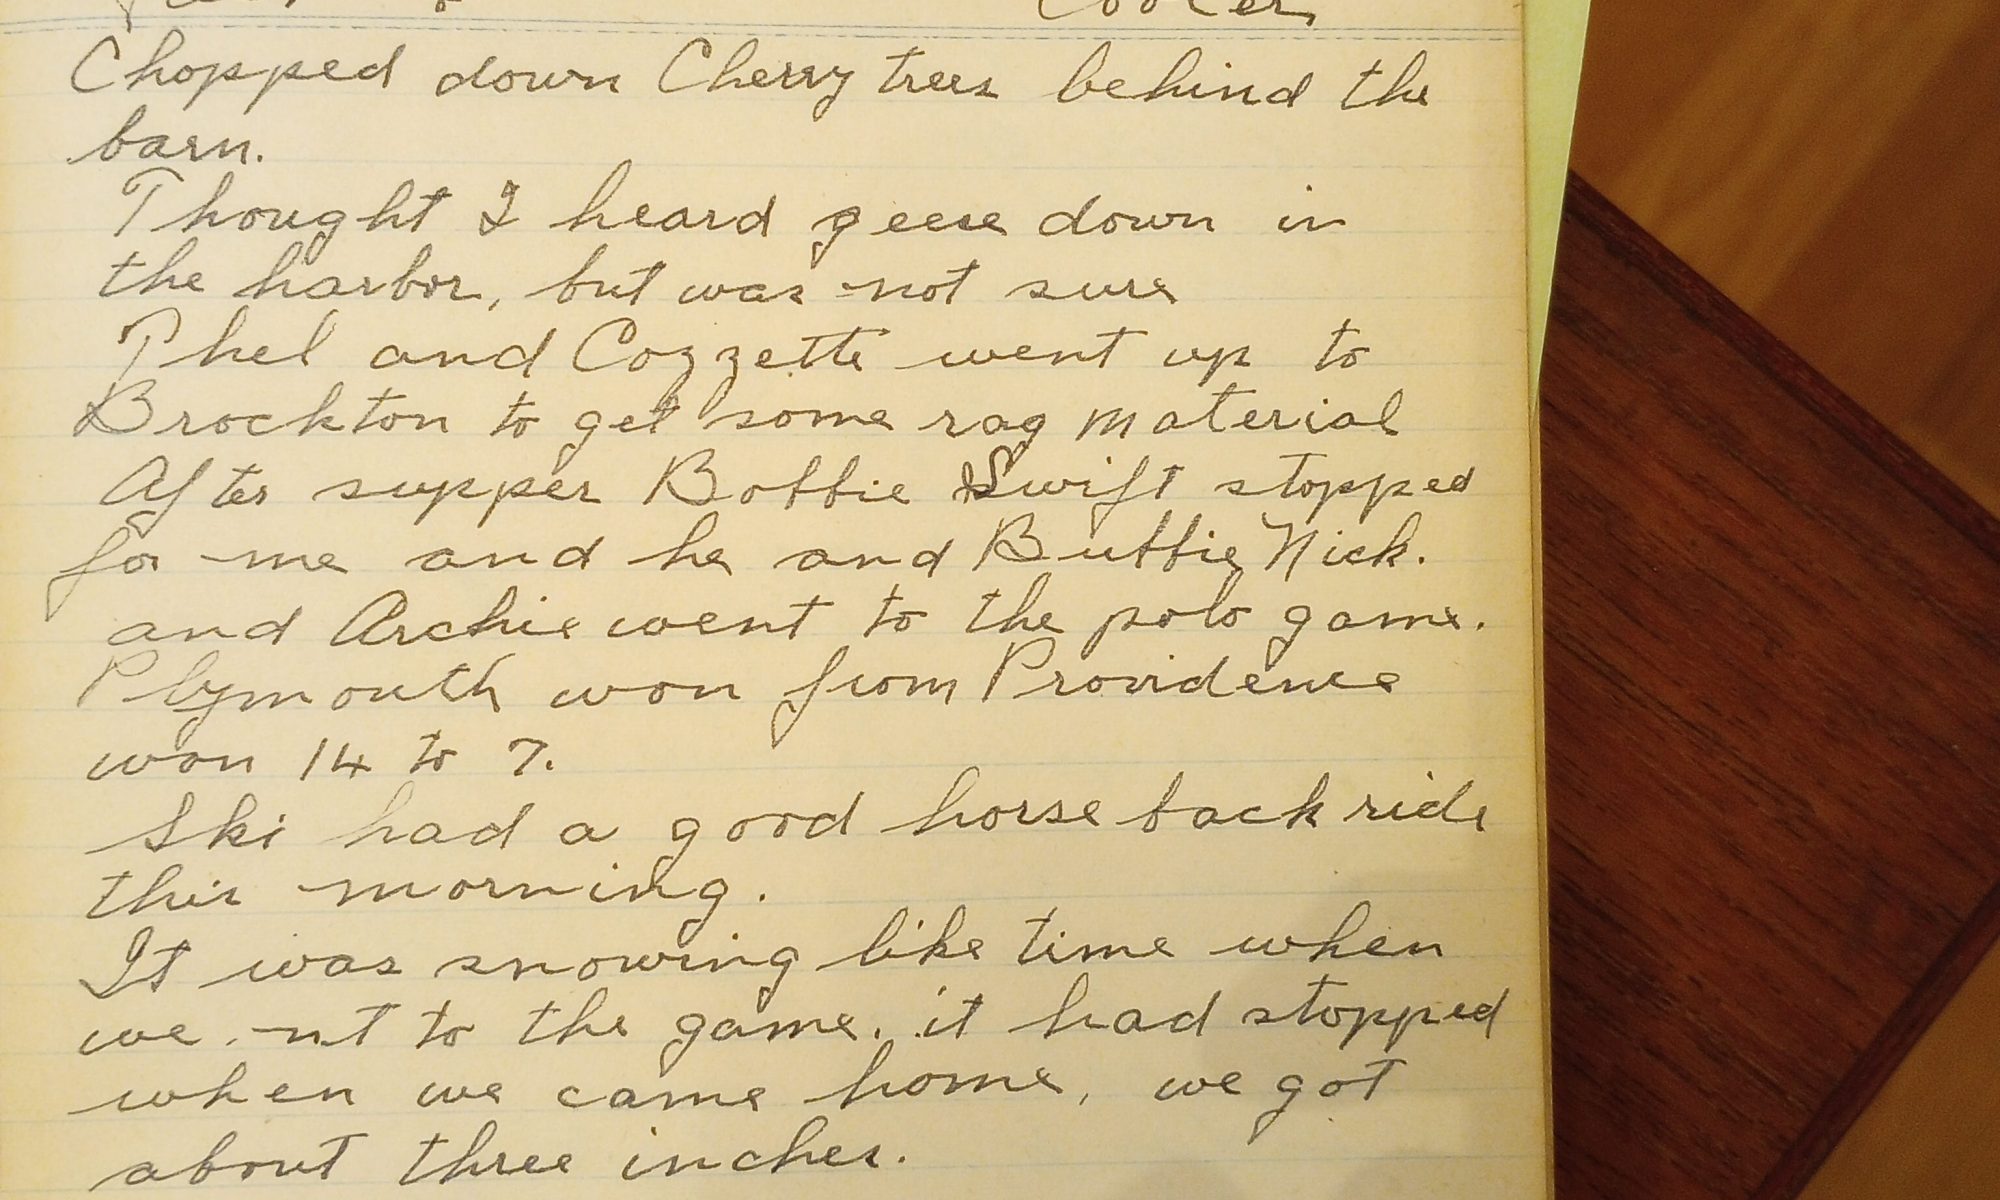 Cooler,
Chopped down Cherry trees behind the
barn.
Thought I heard geese down in
the harbor, but was not sure
Phel and Cozzette went up to
Brockton to get some rag material
After supper Bobbie Swift stopped
for me and he and Buttie Nick.
and Archie went to the polo game.
Plymouth won from Providence
won 14 to 7.
Ski had a good horse back ride
this morning.
It was snowing like time when
we nt to the game. it had stopped
when we came home, we got
about three inches.